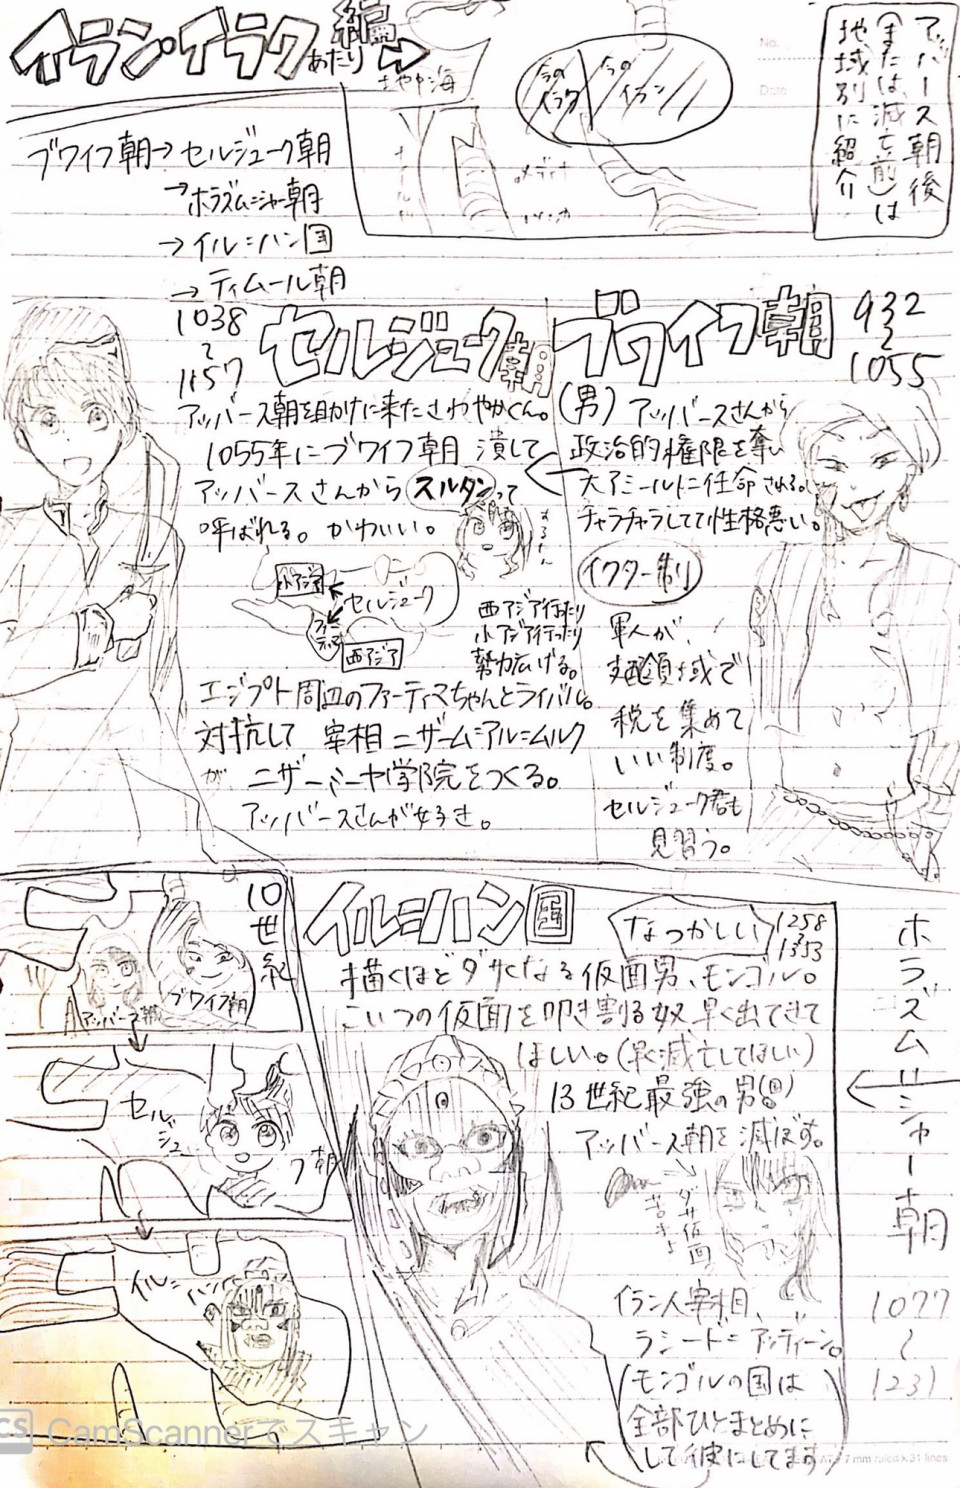 イラン・イラクあたり編
アッバース朝後
(または、滅亡前)は
地域別に紹介
No.
Date
地中海
今のイラク
今のイラン
メディナ
メッカ
ブワイフ朝→セルジューク朝
→ホラズム=シャー朝
→イル=ハン国
→ティムール朝
ブワイフ朝
932
〜
1055
(男)アッバースさんから
政治的権限を奪い
大アミールに任命される。
チャラチャラしてて性格悪い。
イクター制
軍人が、
支配領域で
税を集めて
いい制度。
セルジューク君も
見習う。
セルジューク朝
1038
〜
1157
アッバース朝を助けに来たさわやかくん。
1055年にブワイフ朝潰して
アッバースさんからスルタンって
呼ばれる。かわいい。
するたん
小アジア
セルジューク
ファーティマ
西アジア
西アジア行ったり
小アジア行ったり
勢力広げる。
エジプト周辺のファーティマちゃんとライバル。
対抗して 宰相ニザーム=アル=ムルク
が ニザーミーヤ学院をつくる。
アッバースさんが好き。
10世紀
アッバース朝
ブワイフ朝
セルジューク朝
イル=ハン
イル=ハン国
なつかしい
1258
〜
1353
描くほどダサくなる仮面男、モンゴル。
こいつの仮面を叩き割る奴、早く出てきて
ほしい。(早く滅亡してほしい)
13世紀最強の男
アッバース朝を滅ぼす。
ダサ仮面
イラン人宰相、
ラシード=アッディーン。
(モンゴルの国は
全部ひとまとめに
して彼にしてます)
ホラズム=シャー朝
1077
〜
1231
7 mm ruled × 31 lines
CS CamScannerでスキャン